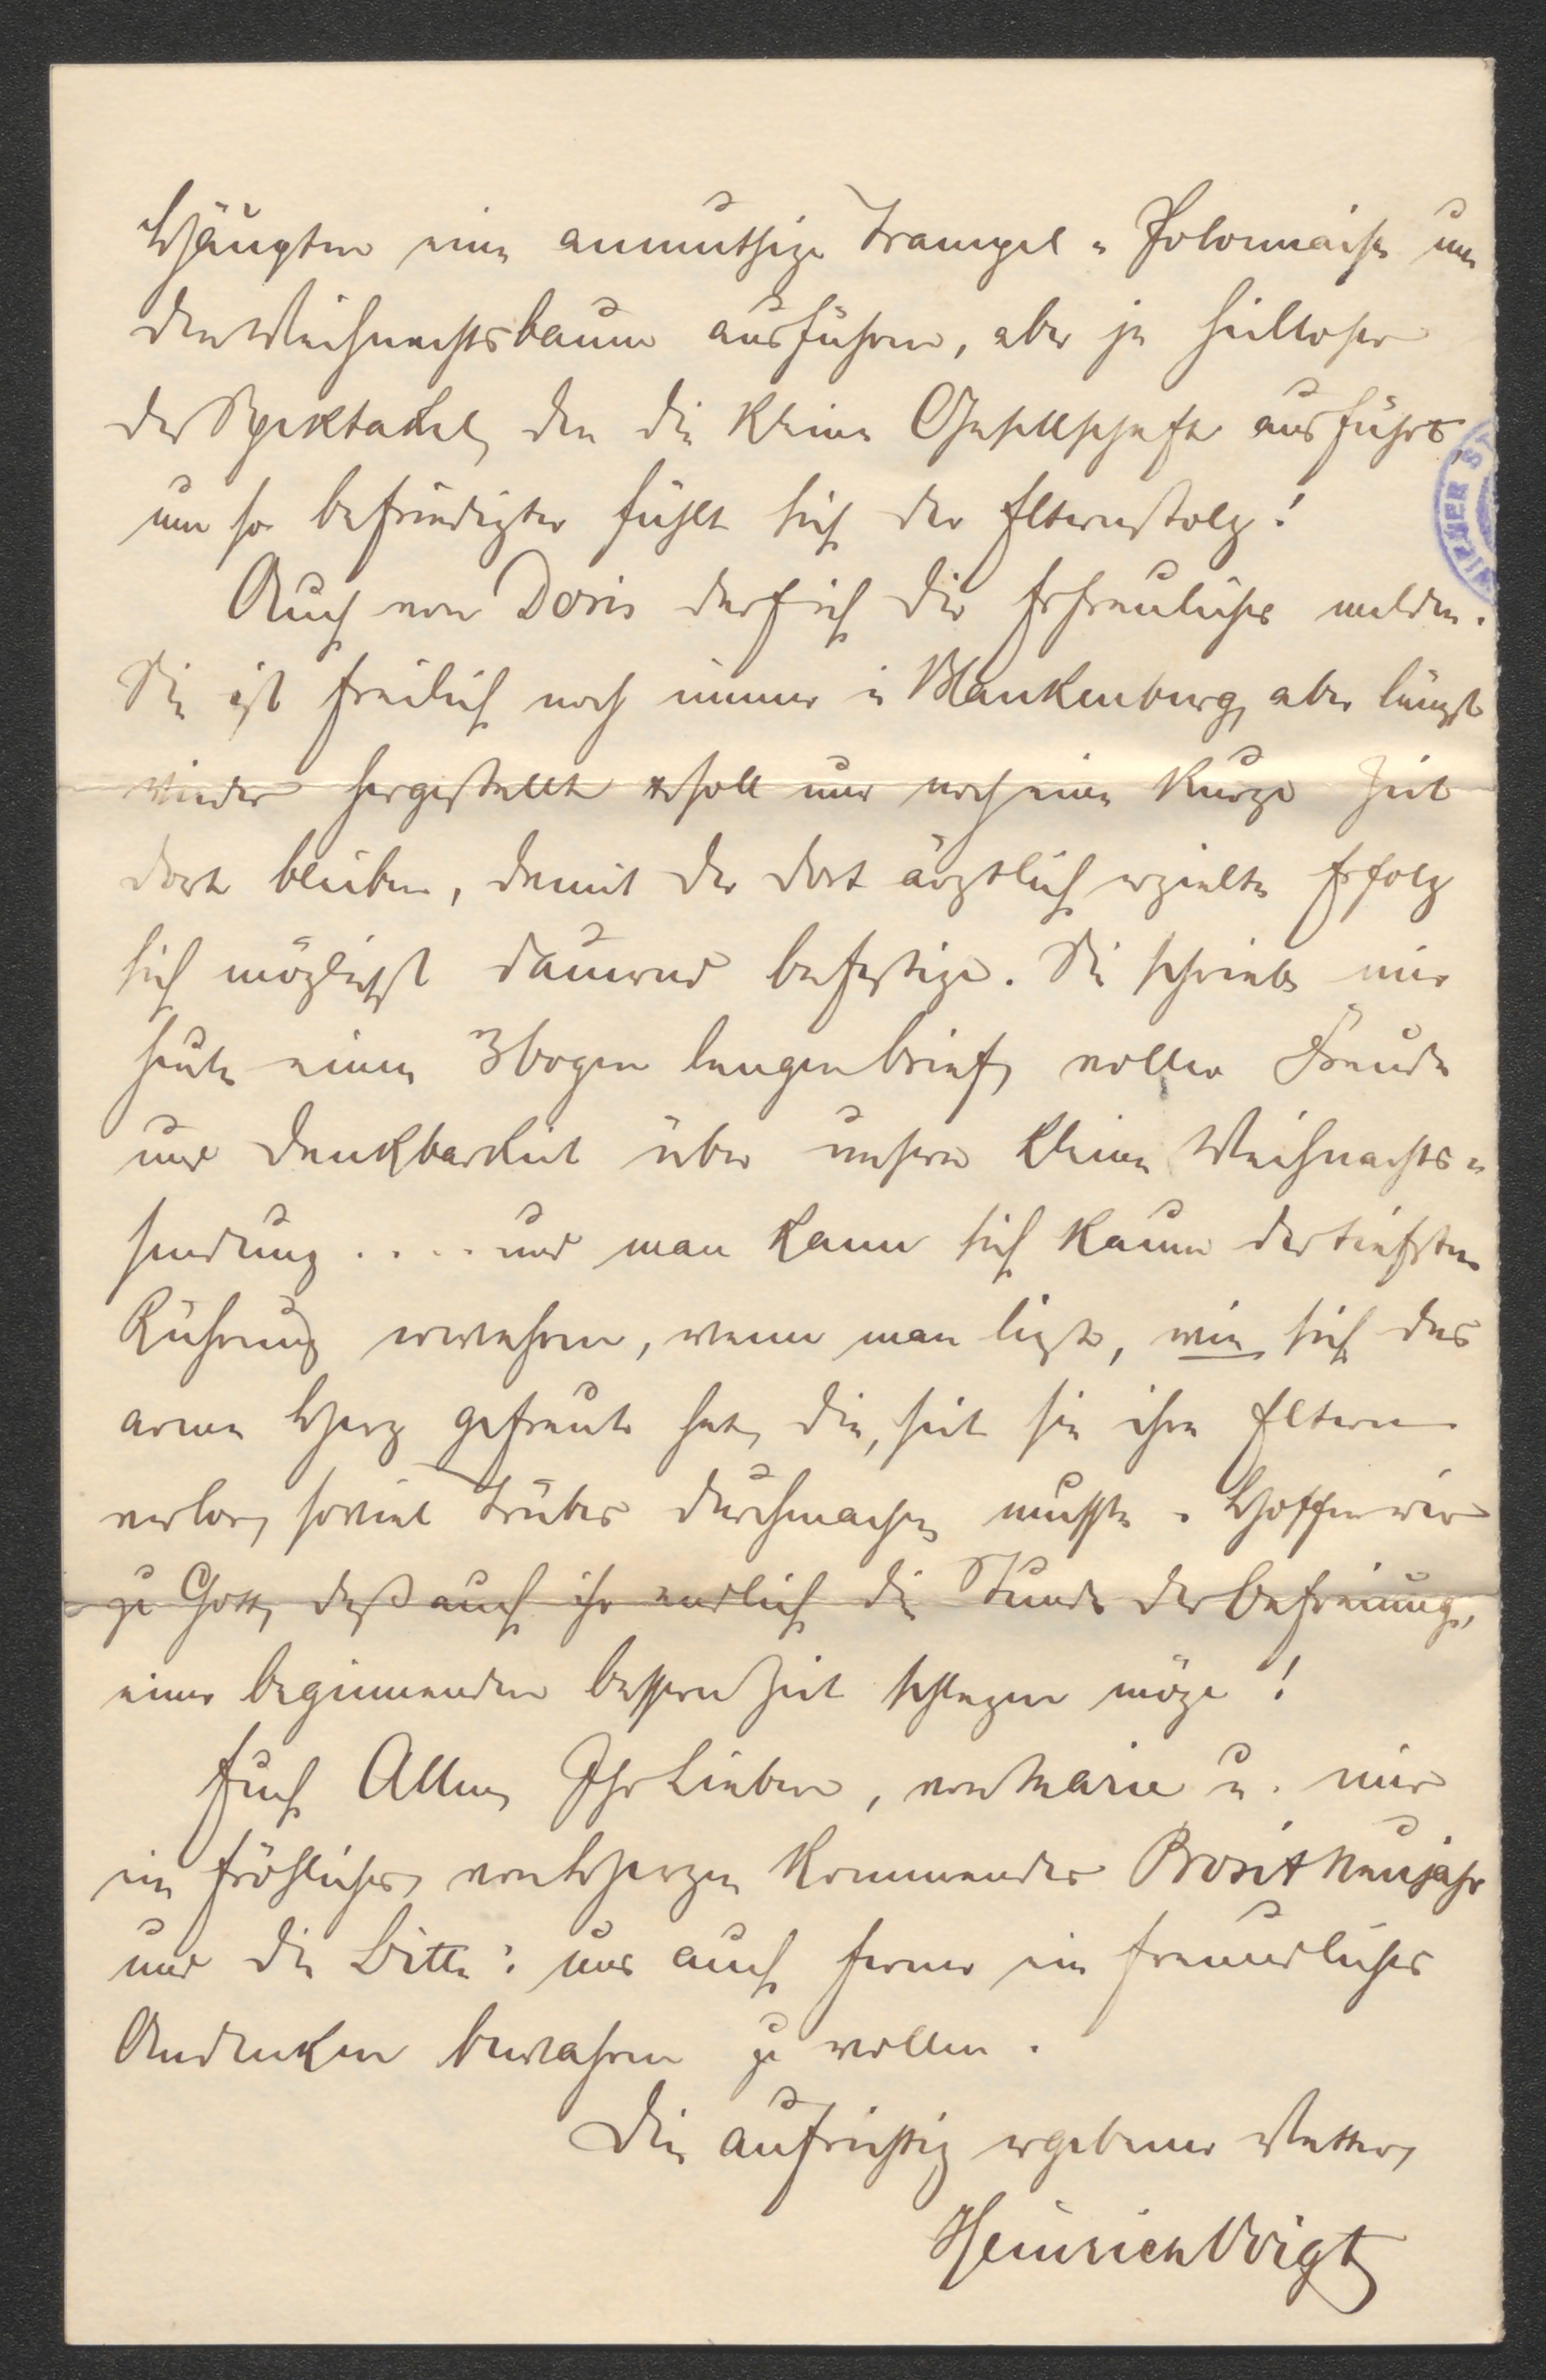 Häupten eine anmuthige Trampel-Polonnaise um
den Weihnachtsbaum ausführen, aber je heilloser
der Spektakel, den die kleine Gesellschaft ausführt,
um so befriedigter fühlt sich der Elternstolz!
Auch von Doris darf ich Dir Erfreuliches melden.
Sie ist freilich noch immer in Blankenburg, aber längst
wieder hergestellt soll nur noch eine kurze Zeit
dort bleiben, damit der dort ärztlich erzielte Erfolg
sich möglichst dauernd befestige. Sie schrieb mir
heute einen 3 bogen langen Brief, voller Freude
und Dankbarkeit über unsere kleine Weihnachts-
sendung .... und man kann sich kaum der tiefsten
Rührung erwehren, wenn man liest, wie sich das
arme Herz gefreut hat, die, seit sie ihre Eltern
verlor, soviel Trübes durchmachen mußte. Hoffen wir
zu Gott, daß auch ihr endlich die Stunde der Befreiung,
einer beginnenden bessern Zeit schlagen möge!
Euch Allen, Ihr Lieben, von Marie u. mir
ein fröhliches, von Herzen kommendes Prosit Neujahr
und die Bitte: uns auch ferner ein freundliches
Andenken bewahren zu wollen.
Dein aufrichtig ergebener Vetter,
Heinrich Voigt
WIENER ST